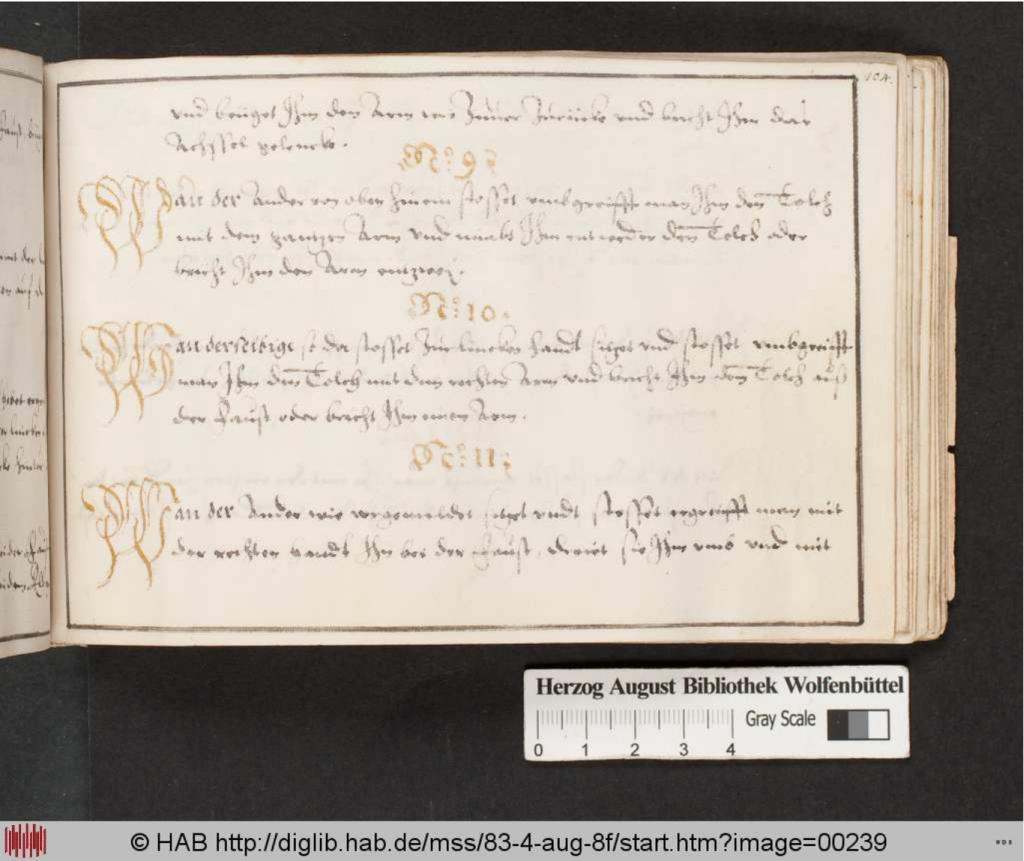 104.
vnd beuget Ihm den Arm ins Zurucke vnd bricht Ihm das
Achssel gelencke.
No: 9:
Wan der Ander von oben hinein stosset vmbgreifft man Ihm den Tolch
mit dem gantzen Arm vnd nimbt Ihm entweder den Tolch oder
bricht Ihm den Arm entzwei.
No: 10.
Wan derselbige so da stosset Zur lincken handt lieget vnd stosset vmbgreifft
man Ihm den Tolch mit dem rechten Arm vnd bricht Ihm den Tolch auß
der Faust oder bricht Ihm einen Arm.
No: 11:
Wan der Ander wie vorgemeldet lieget vndt stosset ergreifft man mit
der rechten handt Ihm bei der Faust, dreiet sie Ihm vmb vnd mit
Herzog August Bibliothek Wolfenbüttel
Gray Scale
0 1 2 3 4
© HAB http://diglib.hab.de/mss/83-4-aug-8f/start.htm?image=00239